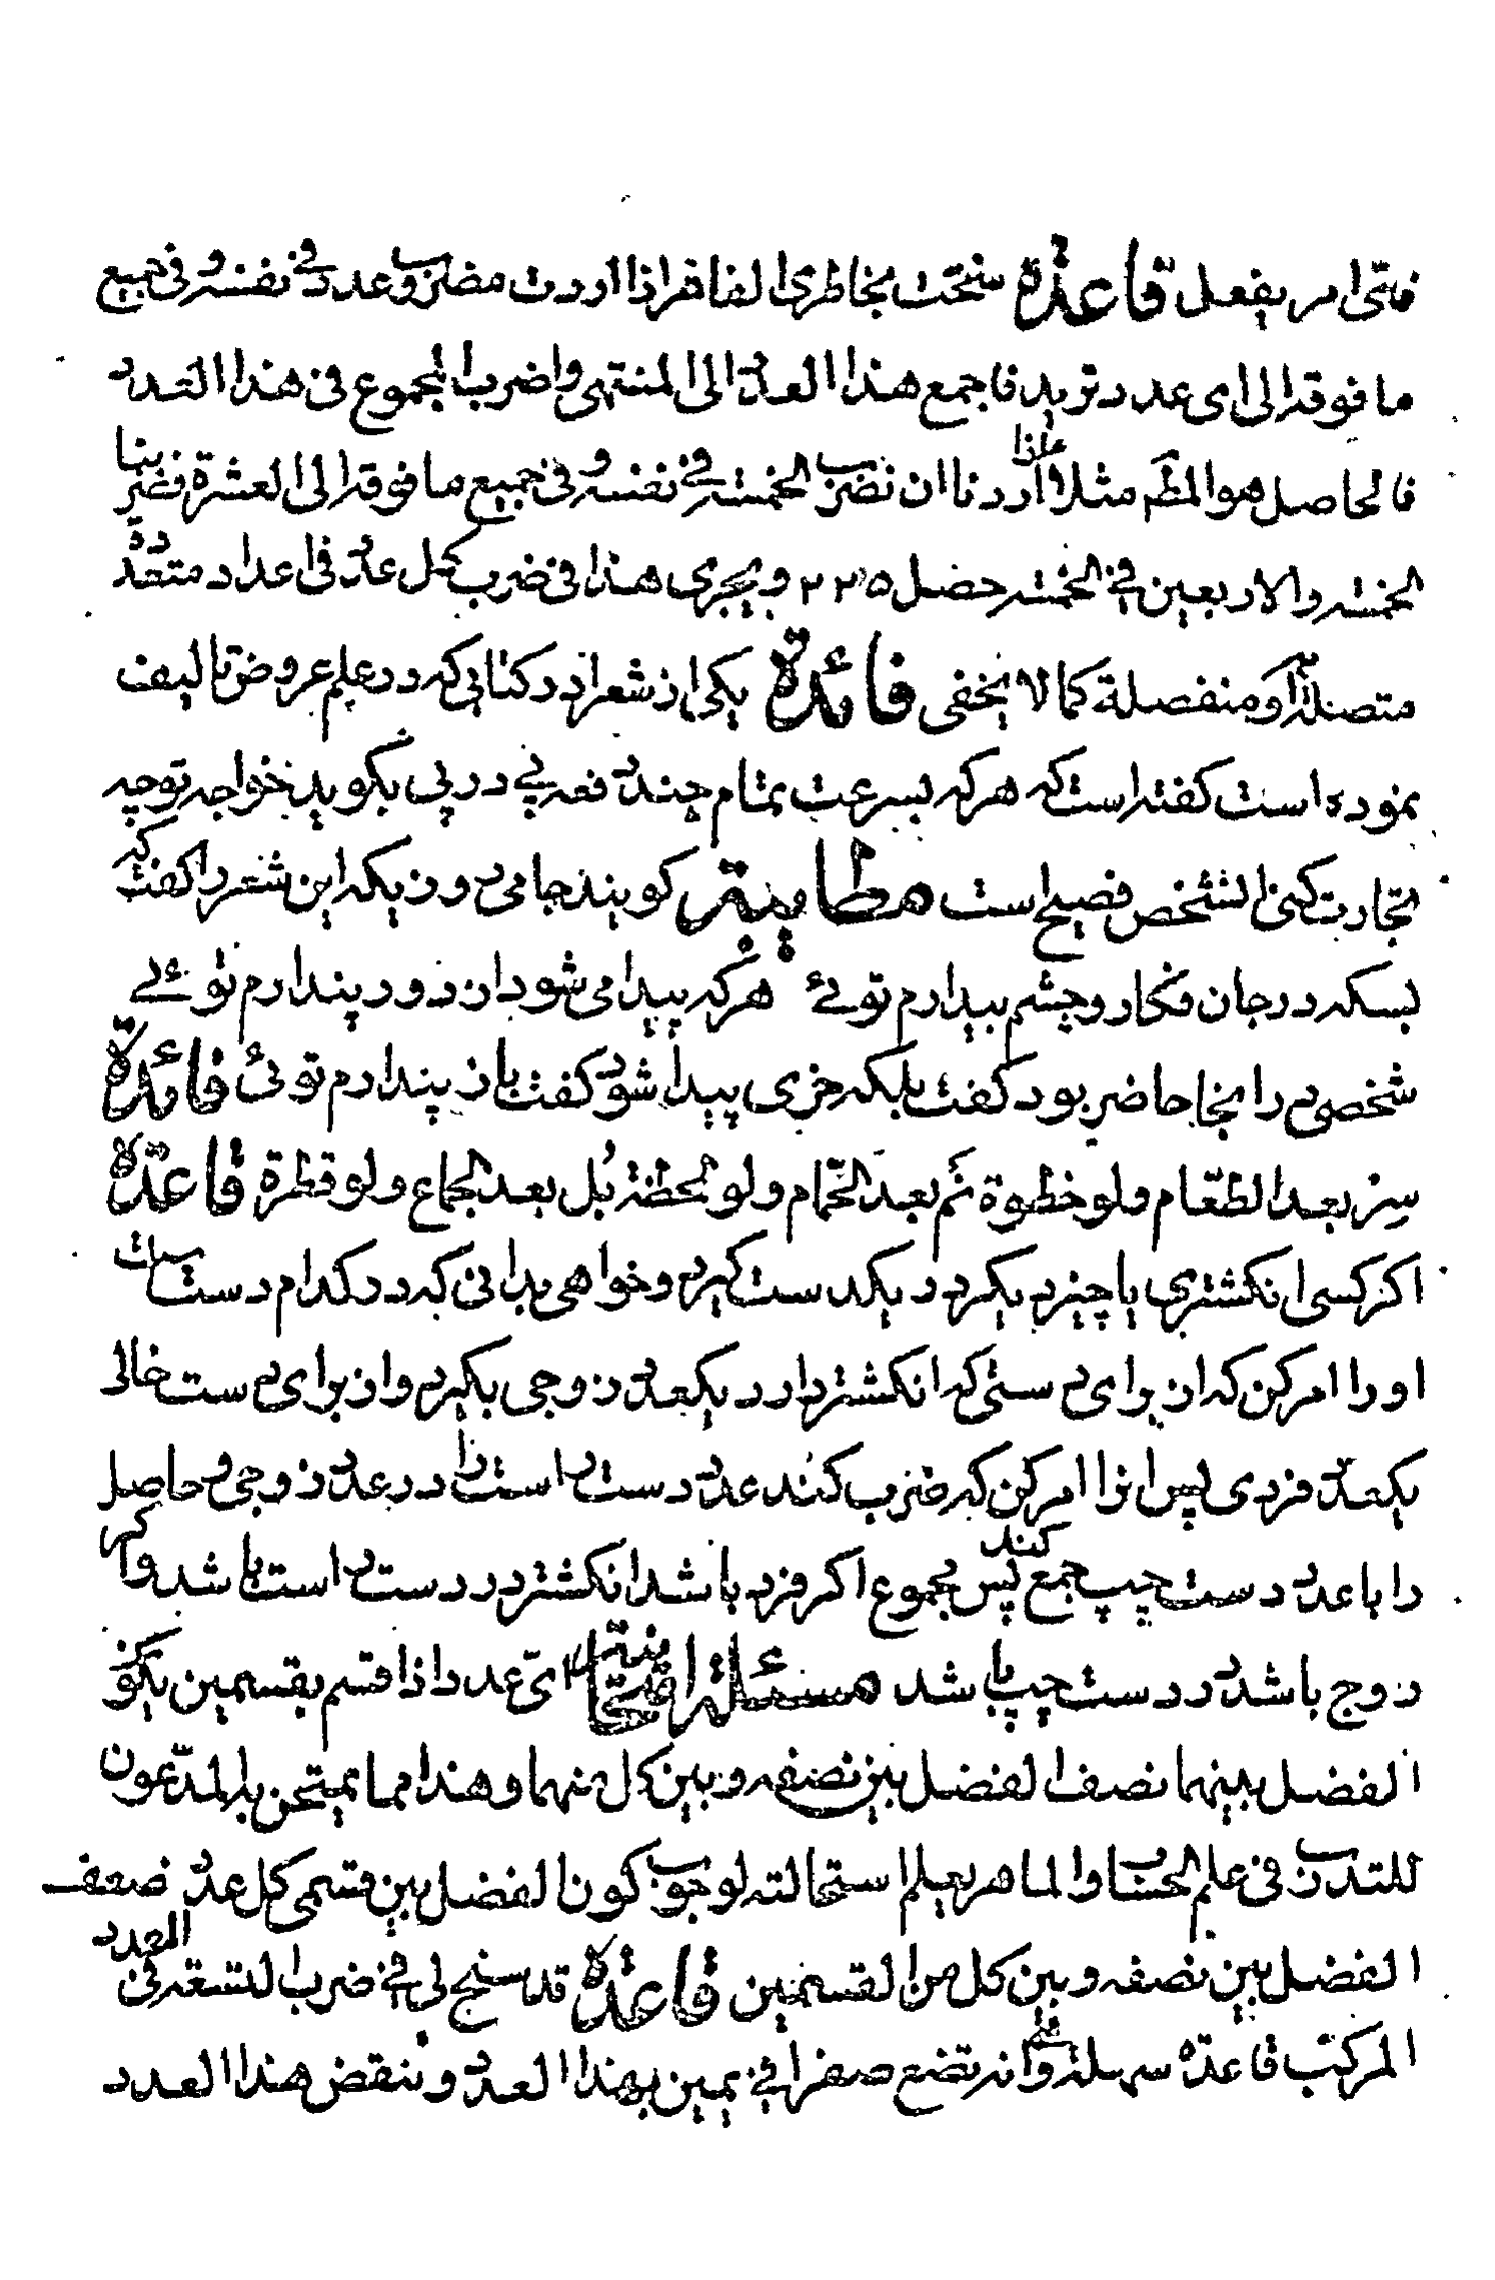 فتى امر بفعل قاعدة سنحت بخاطري الفاتر اذا اردت مضروب عدد في نفسه و في جميع
ما فوقه الى اى عدد تريد فاجمع هذا العدد الى المنتهى واضرب المجموع فى هذا العدد
فالحاصل هو المط مثلا اذا اردنا ان نضرب الخمسه في نفسه و فى جميع ما فوقه الى العشرة ضربنا
الخمسه والاربعين في الخمسه حصل ٢٢٥ ويجرى هذا فى ضرب كل عدد فى اعداد متعددة
متصلة او منفصلة كما لا يخفى فائدة يكى از شعرا در كتابى كه در علم عروض تاليف
نموده است كفته است كه هركه بسرعت تمام چند دفعه پى در پى بكويد خواجه تو چه
تجارت كنى انشخص فصيح است مطايبه كويند جامى روزيكه اين شعر را كفت كه
بسكه در جان فكار و چشم بيدارم توئى هركه پيدا مى شود از دور پندارم توئى
شخصى در انجا حاضر بود كفت بلكه خرى پيدا شود كفت باز پندارم توئى فائدة
سِر بعد الطعّام ولو خطوة نَم بعد الحّمام ولو لحظة بُل بعد الجماع ولو قطرة قاعدة
اكر كسى انكشترى يا چيز ديكر در يكدست كيرد و خواهى بدانى كه در كدام دست است
او را امر كن كه از براى دستى كه انكشتر دارد يكعدد زوجى بكيرد و از براى دست خالى
يكعدد فردى پس او را امر كن كه ضرب كند عدد دست راست را در عدد زوجى و حاصل
را با عدد دست چپ جمع كند پس مجموع اكر فرد باشد انكشتر در دست راست باشد و اكر
زوج باشد در دست چپ باشد مسئلة امتحانية اىّ عدد اذا قسم بقسمين يكون
الفضل بينهما نصف الفضل بين نصفه و بين كل منهما وهذا مما يمتحن به المدّعون
للتدرب فى علم الحساب والماهر يعلم استحالته لوجوب كون الفضل بين قسمى كل عدد ضعف
الفضل بين نصفه و بين كل من القسمين قاعدة قد سنح لى في ضرب التسعة فى العدد
المركب قاعدة سهلة وهى انه تضع صفرا في يمين هذا العدد و تنقص هذا العدد